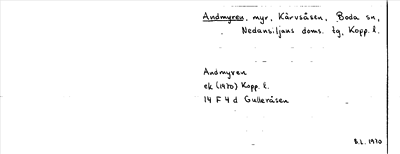 Andmyren, myr, Kårvsåsen, Boda sn,
Nedansiljans doms. tg, Kopp. l.
Andmyren
ek (1970) Kopp. l.
14 F 4 d Gulleråsen
B.L. 1970